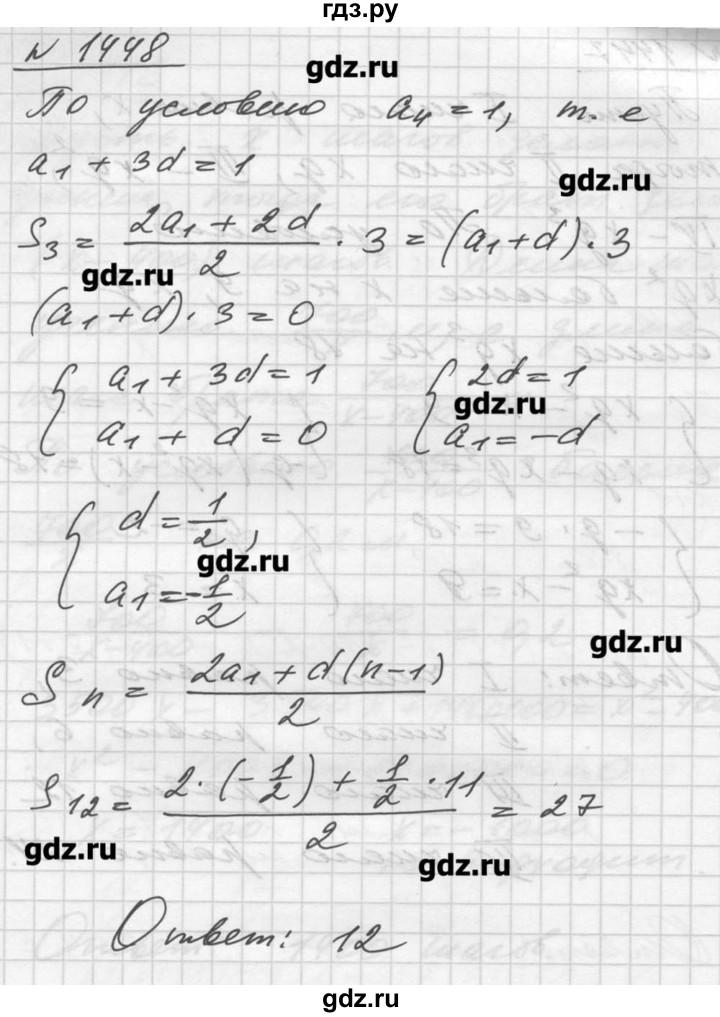 гдз.ру
N 1448
gdz.ru
По условию a₄ = 1, т. е
a₁ + 3d = 1
gdz.ru
S₃ = (2a₁ + 2d)/2 · 3 = (a₁ + d) · 3
gdz.ru
(a₁ + d) · 3 = 0
{ a₁ + 3d = 1 { 2d = 1
gdz.ru
a₁ + d = 0 a₁ = -d
{ d = 1/2,
gdz.ru
a₁ = -1/2
gdz.ru
Sₙ = (2a₁ + d(n-1))/2
S₁₂ = (2 · (-1/2) + 1/2 · 11)/2 = 27
gdz.ru
gdz.ru
Ответ: 12
gdz.ru